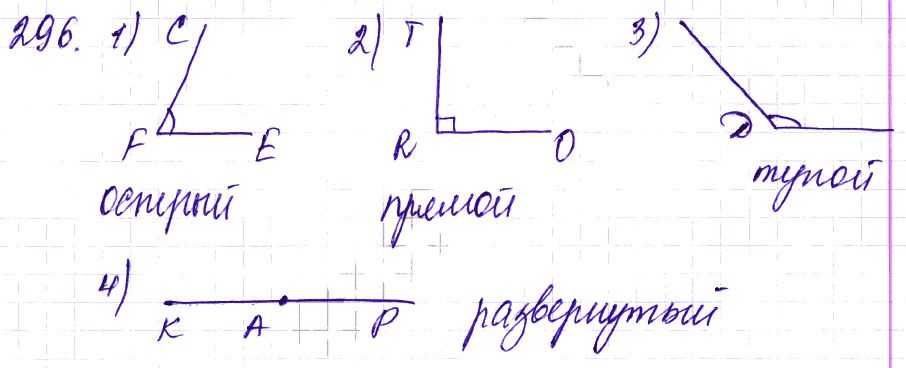 296. 1) C 2) T 3)
F E R O D
острый прямой тупой
4) K A P развернутый